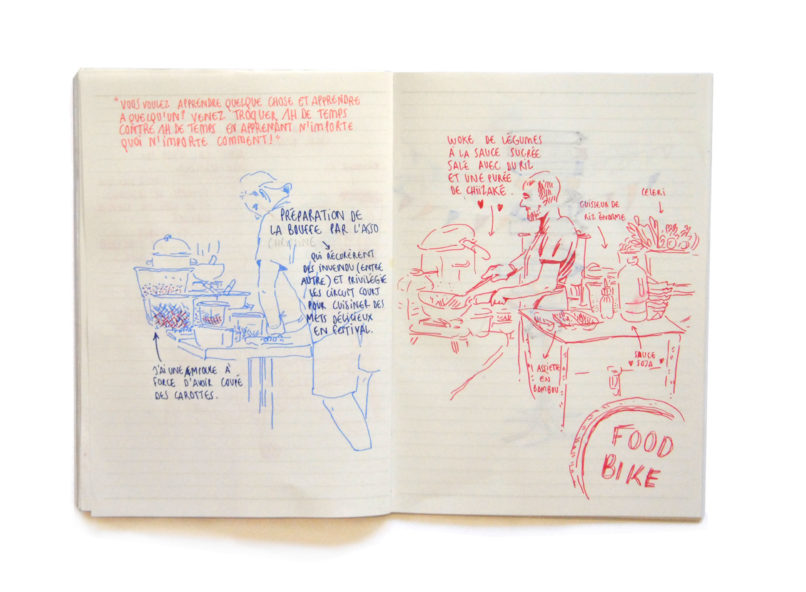 "VOUS VOULEZ APPRENDRE QUELQUE CHOSE ET APPRENDRE
A QUELQU'UN? VENEZ TROQUER 1H DE TEMPS
CONTRE 1H DE TEMPS EN APPRENANT N'IMPORTE
QUOI N'IMPORTE COMMENT!"
PRÉPARATION DE
LA BOUFFE PAR L'ASO
QUI RÉCUPÈRENT
DES INVENDU (ENTRE
AUTRE) ET PRIVILÉGIE
LES CIRCUIT COURT
POUR CUISINER DES
METS DÉLICIEUX
EN FESTIVAL.
J'AI UNE AMPOULE À
FORCE D'AVOIR COUPÉ
DES CAROTTES.
WOKE DE LÉGUMES
À LA SAUCE SUCRÉE
SALÉ AVEC DU RIZ
ET UNE PURÉE
DE CHIIZAKÉ.
CUISEUR DE
RIZ ÉNORME
CELERI
ASSIETE
EN
BAMBOU
SAUCE
SOJA
FOOD
BIKE